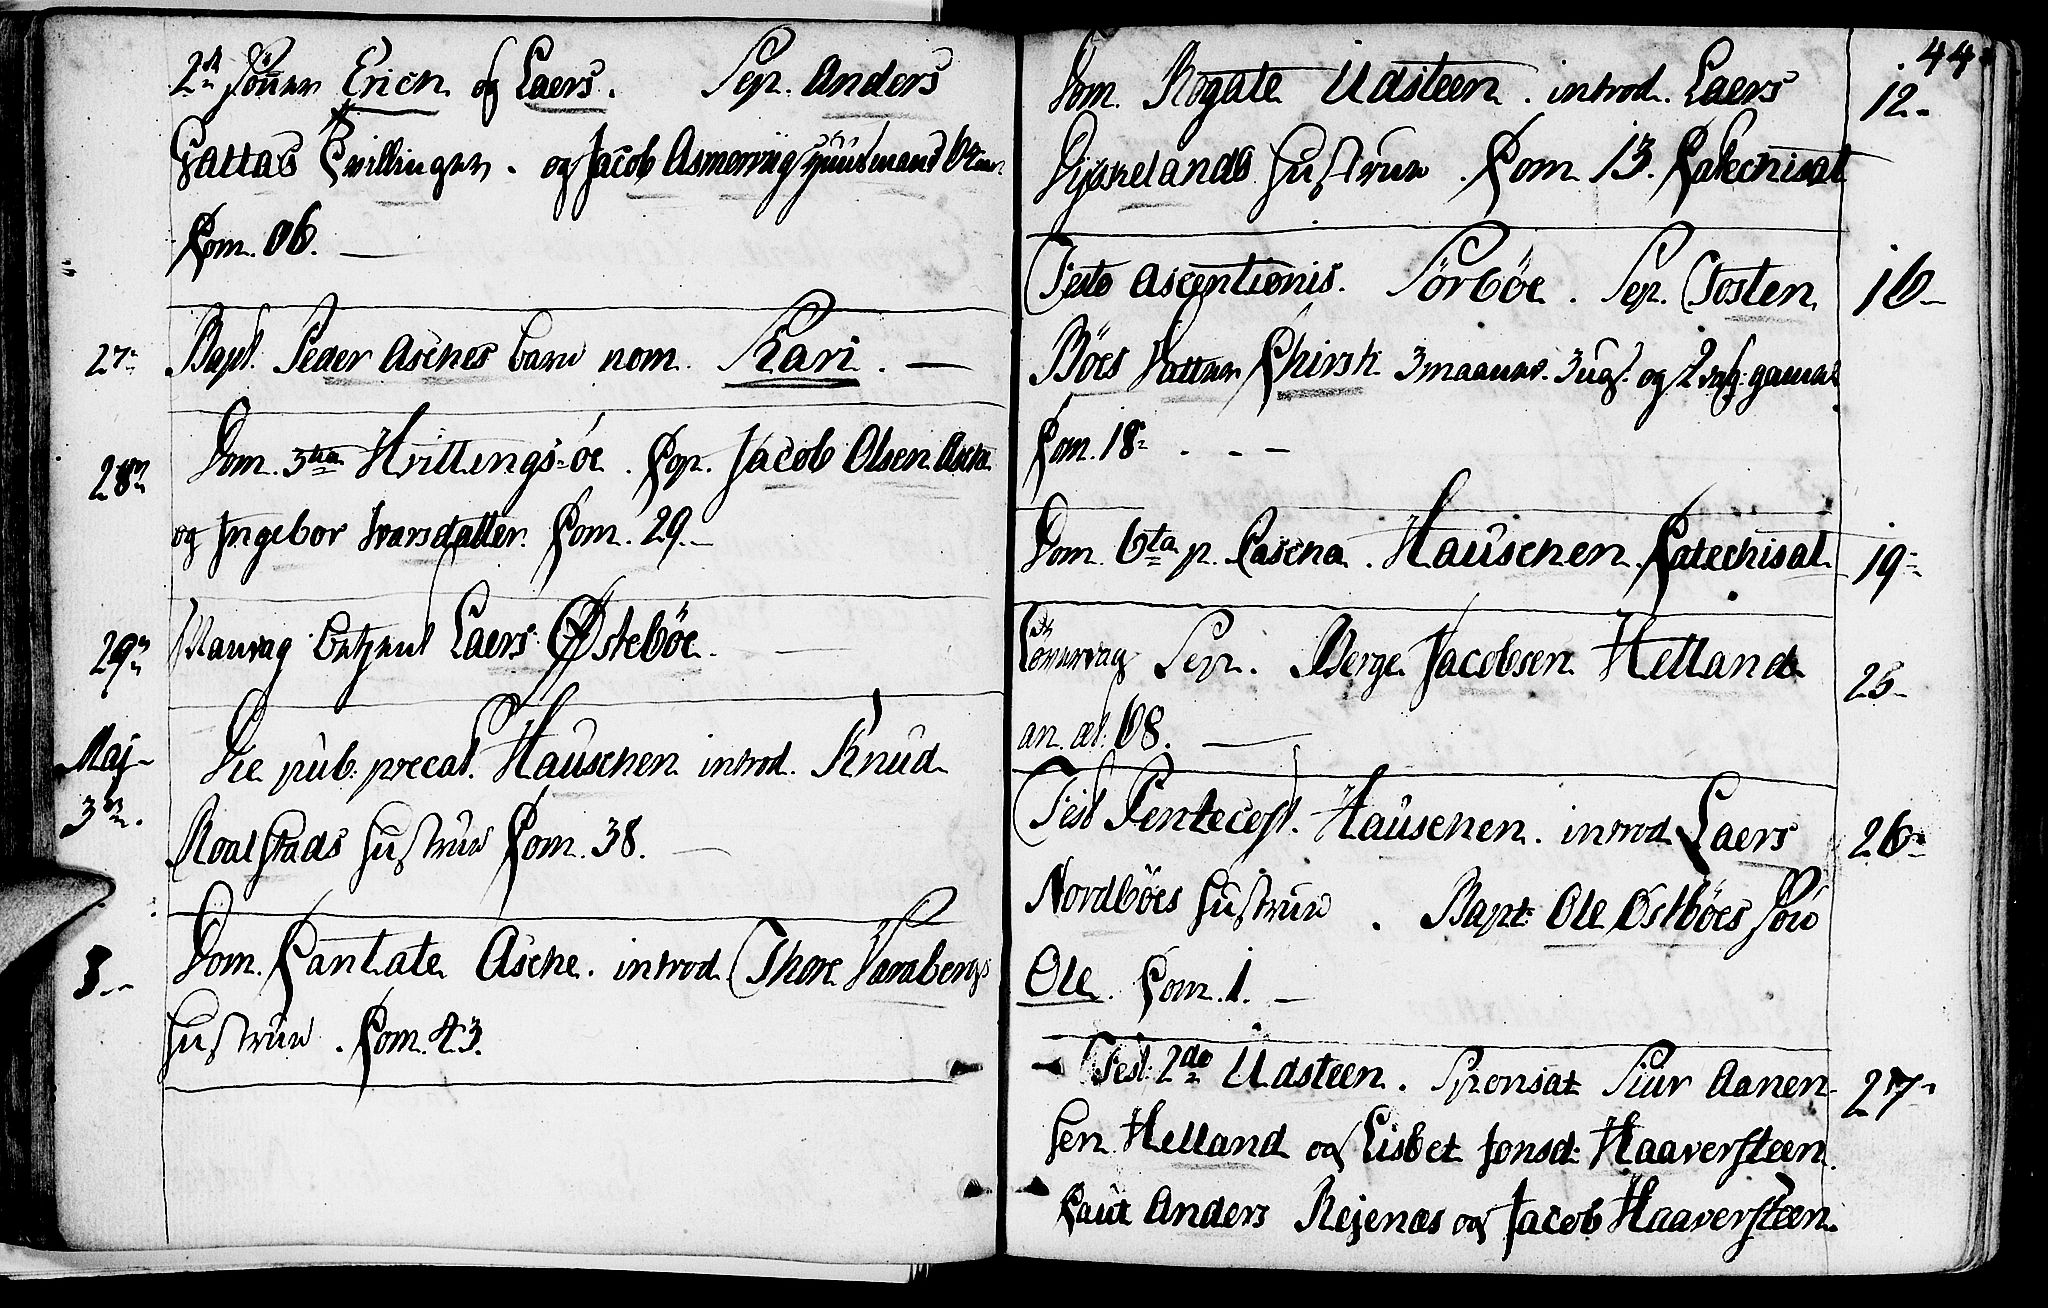 2de Sønner Erich og Laers. Sep. Anders
Hattas Tvillinger. og Jacob Asmervig huusmand
Com. 06. —
27- Bapt. Peder Asches barn nom. Kari. —
28de Dom. 3tia Hvittings-öe. Cop. Jacob Olsen Asche
og Ingebor Ivarsdatter. Com. 29. —
29de Mandag betient Laers Østeböe. —
Maj Die pub. precat. Hauschen introd. Knud
3de Roalstads Hustrue Com. 38. —
5- Dom. Cantate Asche. introd. Thore Varabergs
Hustrue. Com. 43.
44
Dom. Rogate Udsteen. introd. Laers 12-
Hustrue. Com. 13. Catechisat
Festo Ascentionis. Sörböe. Sep. Tosten 16-
Böes datter Chirsti 3 maaner. 3 ug. og 2 dag. gamel
Com. 18- . - -
Dom. 6ta p. Pascha. Hauschen. Catechisat 19-
Löverdag Sep. Berge Jacobsen Helland 25-
an. æt. 68. —
Fest Pentecost. Hauschen. introd. Laers 26-
Nordböes Hustrue. Bapt: Ole Östböes Sön
Ole. Com. 1. —
Fest. 2do Udsteen. Sponsat Siur Aanen- 27-
sen Helland og Lisbet Jonsd: Haaversteen
Caut Anders Rejenæs og Jacob Haaversteen.